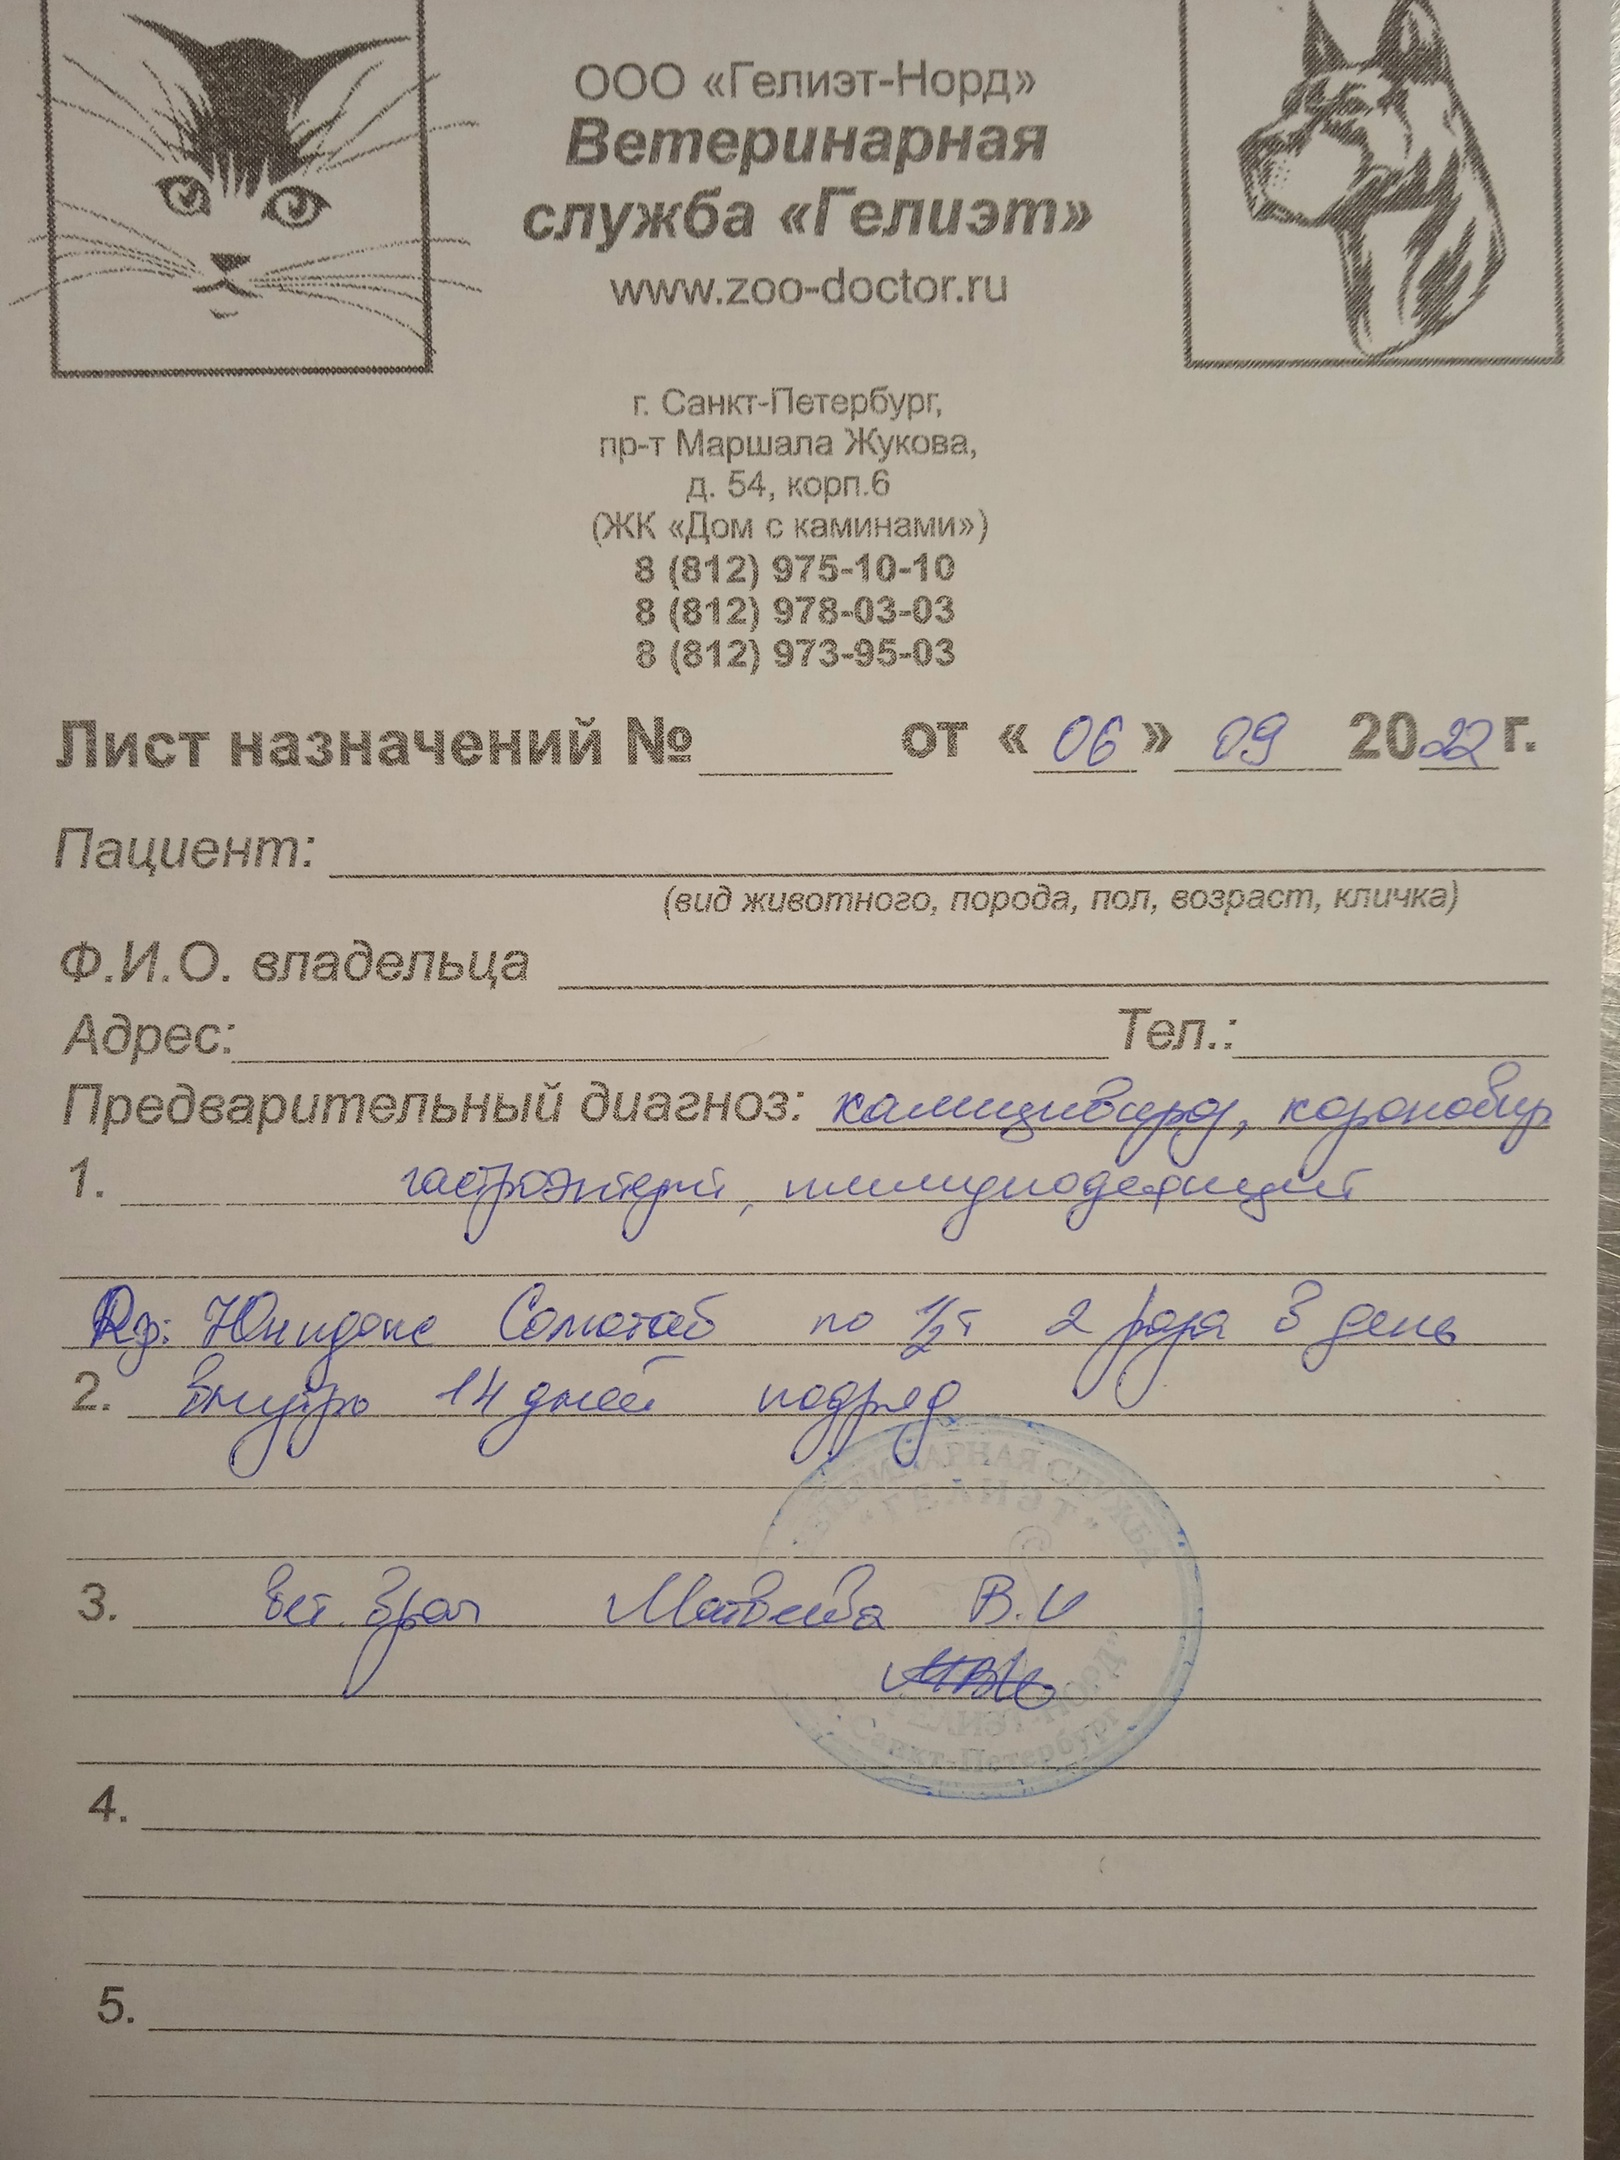 ООО «Гелиэт-Норд»
Ветеринарная
служба «Гелиэт»
www.zoo-doctor.ru
г. Санкт-Петербург,
пр-т Маршала Жукова,
д. 54, корп.6
(ЖК «Дом с каминами»)
8 (812) 975-10-10
8 (812) 978-03-03
8 (812) 973-95-03
Лист назначений № от «06» 09 2022 г.
Пациент:
(вид животного, порода, пол, возраст, кличка)
Ф.И.О. владельца
Адрес: Тел.:
Предварительный диагноз: калицивироз, коронавир
1. гастроэнтерит, иммунодефицит
Rp: Юнидокс Солютаб по 1/2 т 2 раза в день
2. внутрь 14 дней подряд
ВЕТЕРИНАРНАЯ СЛУЖБА
"ГЕЛИЭТ"
3. вет. врач Матвеева В.И
"ГЕЛИЭТ-НОРД"
Санкт-Петербург
4.
5.